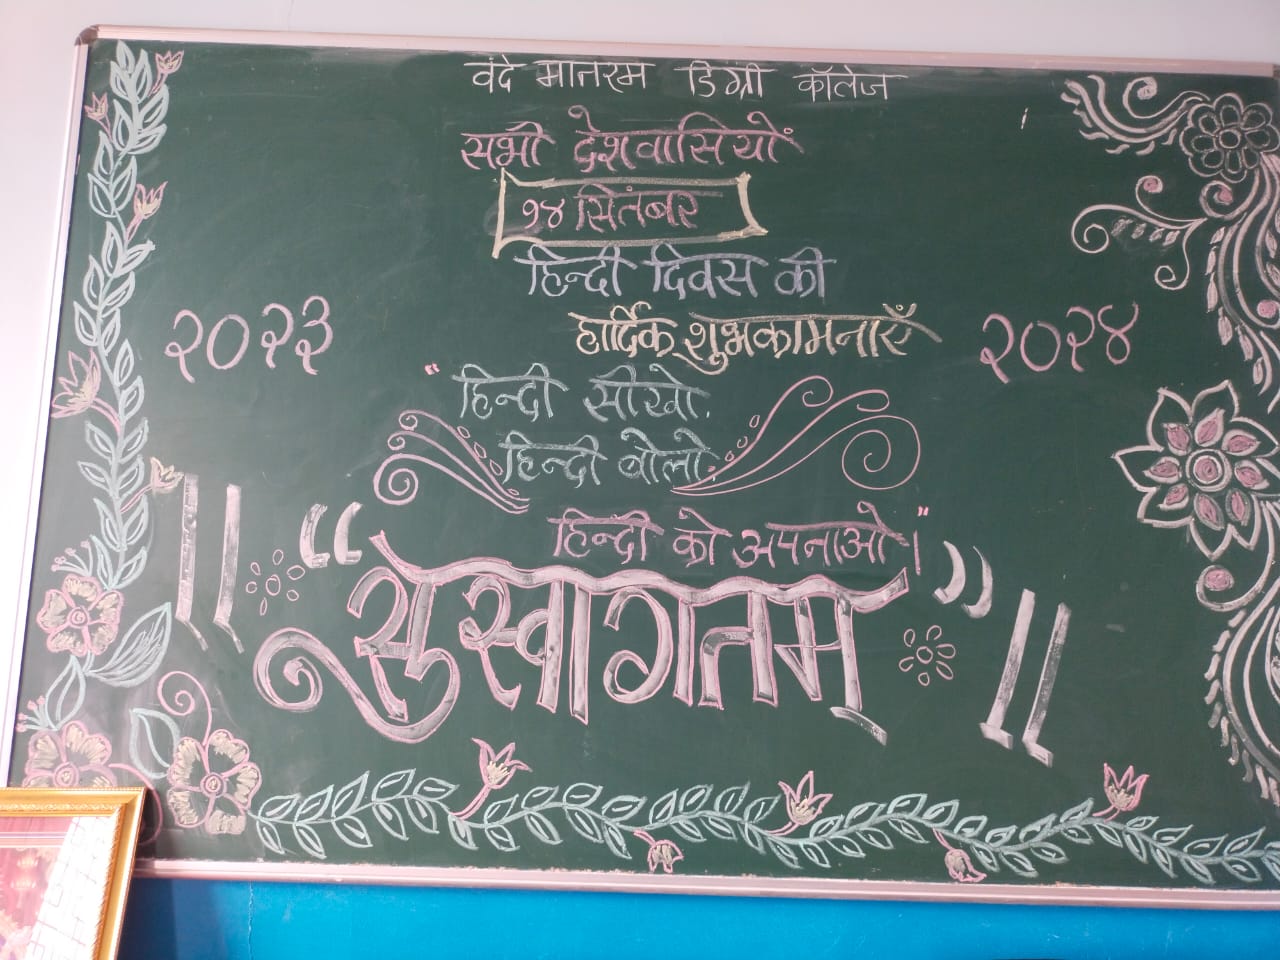 वंदे मातरम डिग्री कॉलेज
सभी देशवासियों
१४ सितंबर
हिन्दी दिवस की
हार्दिक शुभकामनाएँ
२०२३
२०२४
"हिन्दी सीखो.
हिन्दी बोलो
हिन्दी को अपनाओ।"
॥ "सुस्वागतम्" ॥